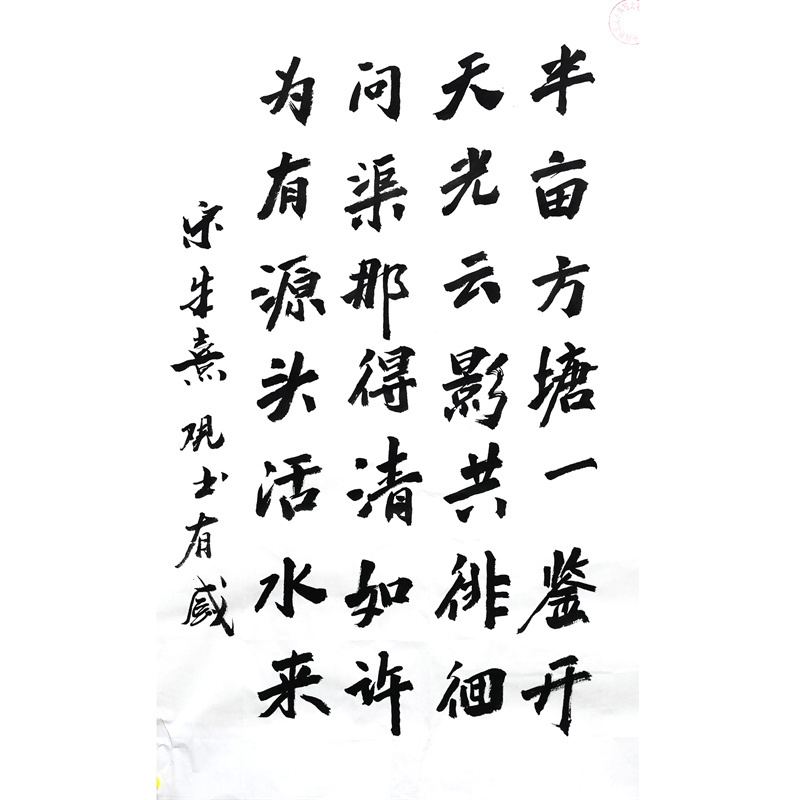 半亩方塘一鉴开
天光云影共徘徊
问渠那得清如许
为有源头活水来
宋朱熹 观书有感